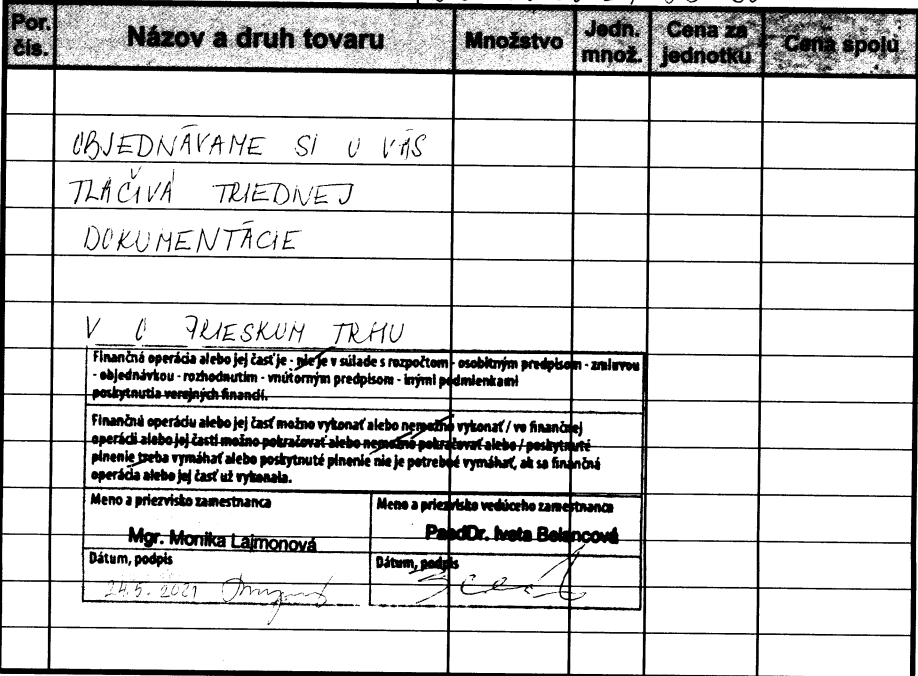 Por. čís. Názov a druh tovaru Množstvo Jedn. množ. Cena za jednotku Cena spolu
OBJEDNÁVAME SI U VÁS
TLAČIVÁ TRIEDNEJ
DOKUMENTÁCIE
V O PRIESKUM TRHU
Finančná operácia alebo jej časť je - nie je v súlade s rozpočtom - osobitným predpisom - zmluvou
- objednávkou - rozhodnutím - vnútorným predpisom - inými podmienkami
poskytnutia verejných financií.
Finančnú operáciu alebo jej časť možno vykonať alebo nemožno vykonať / vo finančnej
operácii alebo jej časti možno pokračovať alebo nemožno pokračovať alebo / poskytnuté
plnenie treba vymáhať alebo poskytnuté plnenie nie je potrebné vymáhať, ak sa finančná
operácia alebo jej časť už vykonala.
Meno a priezvisko zamestnanca Meno a priezvisko vedúceho zamestnanca
Mgr. Monika Lajmonová PaedDr. Iveta Belancová
Dátum, podpis Dátum, podpis
24.5.2021